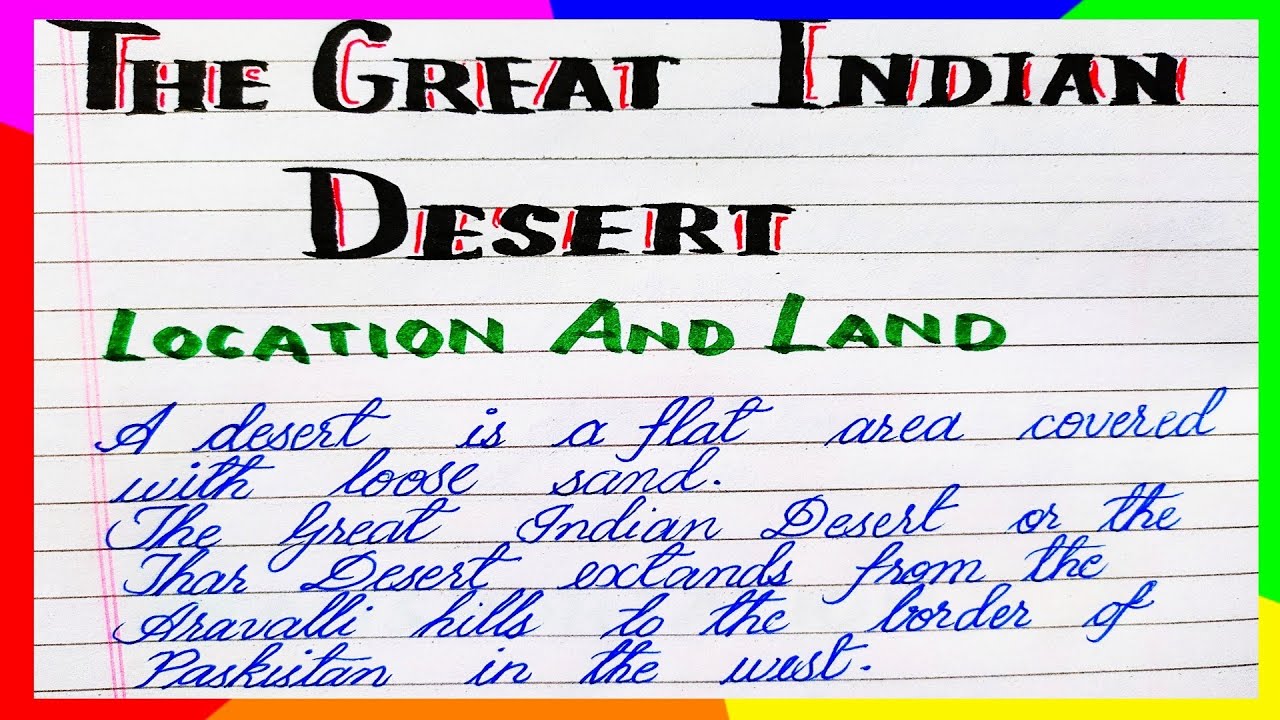 THE GREAT INDIAN
DESERT
LOCATION AND LAND
A desert is a flat area covered
with loose sand.
The Great Indian Desert or the
Thar Desert extands from the
Aravalli hills to the border of
Paskistan in the west.